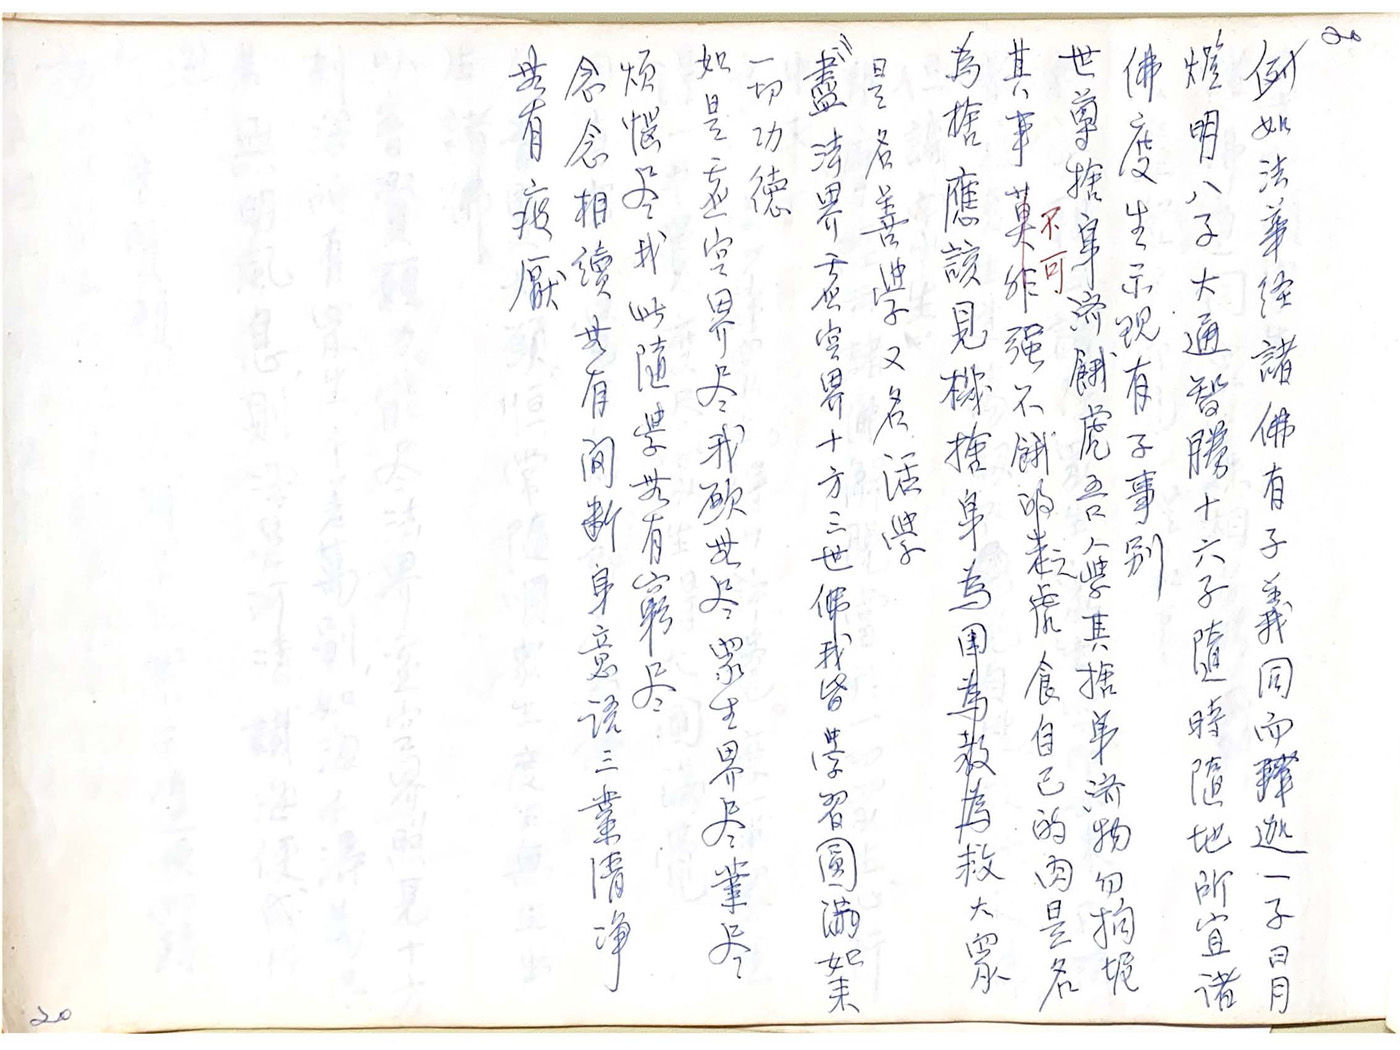 20
例如法華経諸佛有子義同而釋迦一子日月
燈明八子大通智勝十六子隨時隨地所宜諸
佛度生示現有子事別
世尊捨身濟餓虎吾人學其捨身濟物勿拘坭
其事莫非不可强不餓的老虎食自己的肉是名
為捨應該見機捨身為用為教為救大眾
是名善學又名活學
盡法界虛空界十方三世佛我皆學習圓滿如來
一切功德
如是虛空界尽我願無尽眾生界尽業尽
煩惱尽我此隨學無有窮尽
念念相續無有间断身意语三業清净
無有疲厭
20